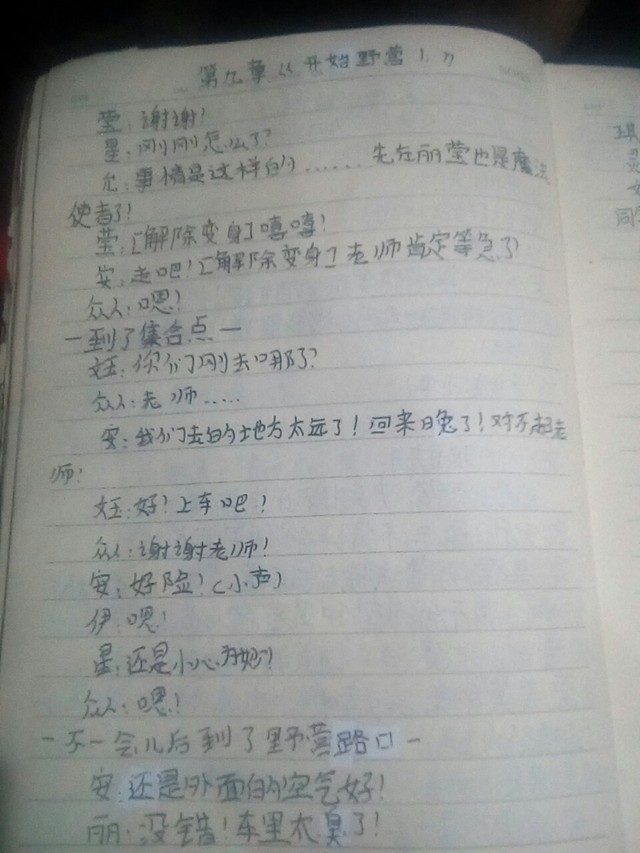 第九章《开始野营1.》
莹:谢谢!
星:刚刚怎么了?
允:事情是这样的……先在丽莹也是魔法
使者了!
莹:[解除变身]嘻嘻!
安:走吧![解除变身]老师肯定等急了
众人:嗯!
一到了集合点一
妵:你们刚去哪了?
众人:老师.....
安:我们去的地方太远了!回来晚了!对不起老
师!
妵:好!上车吧!
众人:谢谢老师!
安:好险!(小声)
伊:嗯!
星:还是小心为妙!
众人:嗯!
-不一会儿后到了野营路口-
安:还是外面的空气好!
丽:没错!车里太臭了!
同